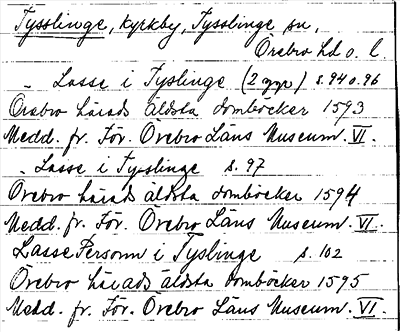 Tysslinge, kyrkby, Tysslinge sn,
Örebro hd o. l.
- Lasse i Tyslinge (2 ggr) s. 94 o. 96
Örebro härads äldsta domböcker 1593
Medd. fr. För. Örebro Läns Museum. VI.
- Lasse i Tysslinge s. 97
Örebro härads äldsta domböcker 1594
Medd. fr. För. Örebro Läns Museum. VI.
Lasse Persson i Tyslinge s. 102
Örebro härads äldsta domböcker 1595
Medd. fr. För. Örebro Läns Museum. VI.